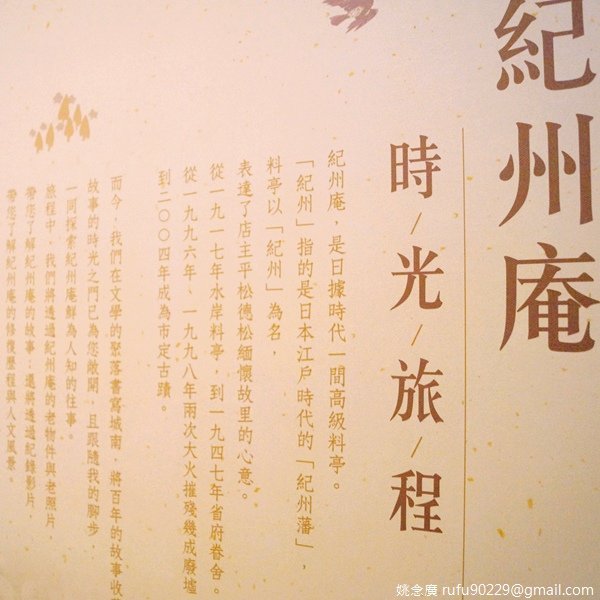 紀州庵
時/光/旅/程
紀州庵，是日據時代一間高級料亭。
「紀州」指的是日本江戶時代的「紀州藩」，
料亭以「紀州」為名，
表達了店主平松德松緬懷故里的心意。
從一九一七年水岸料亭，到一九四七年省府眷舍。
從一九九六年、一九九八年兩次大火摧殘幾成廢墟
到二〇〇四年成為市定古蹟。
而今，我們在文學的聚落書寫城南，將百年的故事收
故事的時光之門已為您敞開，且跟隨我的腳步，
一同探索紀州庵鮮為人知的往事。
旅程中，我們將透過紀州庵的老物件與老照片，
帶您了解紀州庵的故事，還將透過紀錄影片，
帶您了解紀州庵的修復歷程與人文風景。
姚念廣 rufu90229@gmail.com